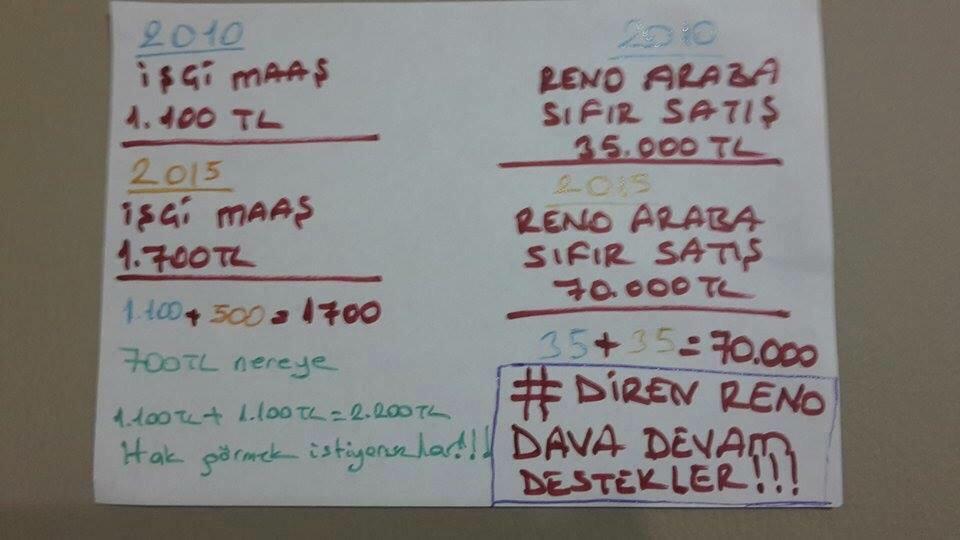 2010
İŞÇİ MAAŞ
1.100 TL
2015
İŞÇİ MAAŞ
1.700TL
1.100+500=1700
700TL nereye
1.100TL+1.100TL=2.200TL
Hak görmek istiyorlar!!!
2010
RENO ARABA
SIFIR SATIŞ
35.000 TL
2015
RENO ARABA
SIFIR SATIŞ
70.000 TL
35+35=70.000
# DİREN RENO
DAVA DEVAM
DESTEKLER!!!